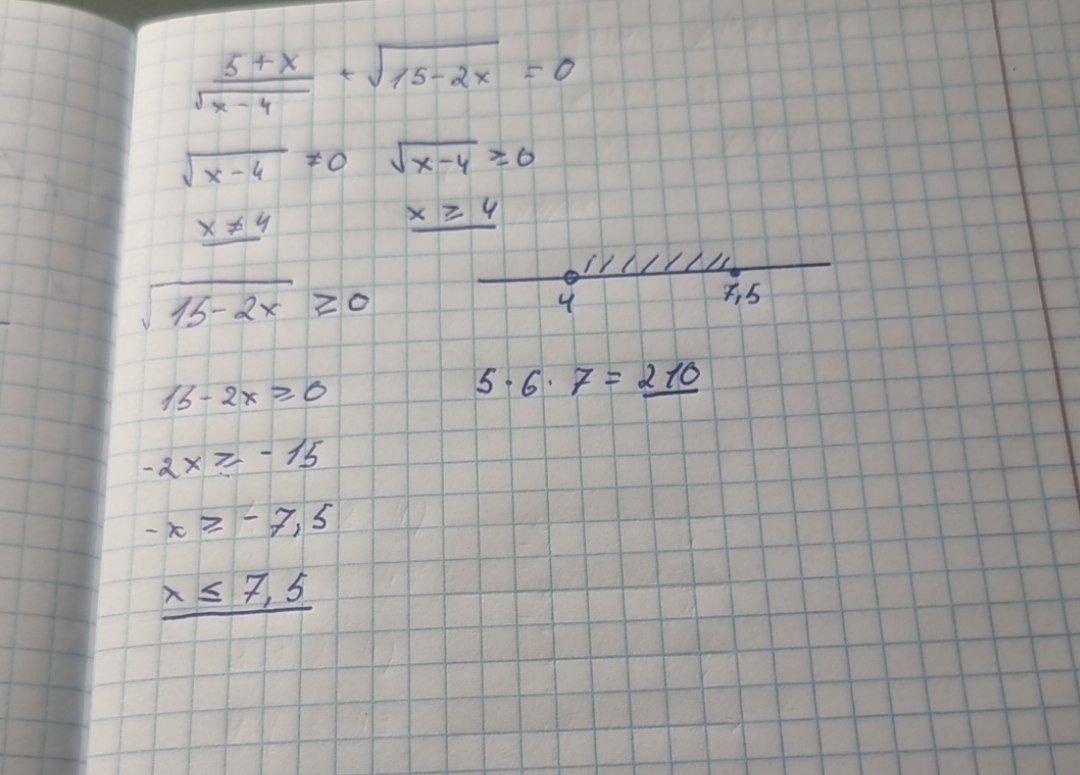 5+x/√x-4 + √15-2x = 0
√x-4 ≠0 √x-4 ≥0
x≠4 x ≥ 4
√15-2x ≥0
4 7,5
15-2x≥0 5·6·7=210
-2x≥-15
-x≥-7,5
x≤7,5